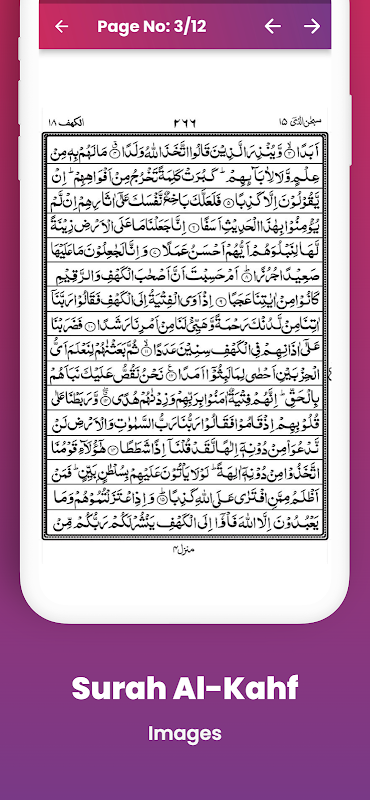 Page No: 3/12
الكهف ۱۸
۲۶۶
سبحن الذی ۱۵
اَبَدًا ۙ۳ وَّیُنْذِرَ الَّذِیْنَ قَالُوا اتَّخَذَ اللّٰهُ وَلَدًا ۙ۴ مَا لَهُمْ بِهٖ مِنْ
عِلْمٍ وَّلَا لِاٰبَآىِٕهِمْ ؕ كَبُرَتْ كَلِمَةً تَخْرُجُ مِنْ اَفْوَاهِهِمْ ؕ اِنْ
یَّقُوْلُوْنَ اِلَّا كَذِبًا ۵ فَلَعَلَّكَ بَاخِعٌ نَّفْسَكَ عَلٰۤی اٰثَارِهِمْ اِنْ لَّمْ
یُؤْمِنُوْا بِهٰذَا الْحَدِیْثِ اَسَفًا ۶ اِنَّا جَعَلْنَا مَا عَلَی الْاَرْضِ زِیْنَةً
لَّهَا لِنَبْلُوَهُمْ اَیُّهُمْ اَحْسَنُ عَمَلًا ۷ وَ اِنَّا لَجٰعِلُوْنَ مَا عَلَیْهَا
صَعِیْدًا جُرُزًا ؕ۸ اَمْ حَسِبْتَ اَنَّ اَصْحٰبَ الْكَهْفِ وَالرَّقِیْمِ
كَانُوْا مِنْ اٰیٰتِنَا عَجَبًا ۹ اِذْ اَوَی الْفِتْیَةُ اِلَی الْكَهْفِ فَقَالُوْا رَبَّنَاۤ
اٰتِنَا مِنْ لَّدُنْكَ رَحْمَةً وَّهَیِّئْ لَنَا مِنْ اَمْرِنَا رَشَدًا ۱۰ فَضَرَبْنَا
عَلٰۤی اٰذَانِهِمْ فِی الْكَهْفِ سِنِیْنَ عَدَدًا ۙ۱۱ ثُمَّ بَعَثْنٰهُمْ لِنَعْلَمَ اَیُّ
الْحِزْبَیْنِ اَحْصٰی لِمَا لَبِثُوْۤا اَمَدًا ۠۱۲ نَحْنُ نَقُصُّ عَلَیْكَ نَبَاَهُمْ
بِالْحَقِّ ؕ اِنَّهُمْ فِتْیَةٌ اٰمَنُوْا بِرَبِّهِمْ وَزِدْنٰهُمْ هُدًی ۖ۱۳ وَّرَبَطْنَا عَلٰی
قُلُوْبِهِمْ اِذْ قَامُوْا فَقَالُوْا رَبُّنَا رَبُّ السَّمٰوٰتِ وَالْاَرْضِ لَنْ
نَّدْعُوَاۡ مِنْ دُوْنِهٖۤ اِلٰهًا لَّقَدْ قُلْنَاۤ اِذًا شَطَطًا ۱۴ هٰۤؤُلَآءِ قَوْمُنَا
اتَّخَذُوْا مِنْ دُوْنِهٖۤ اٰلِهَةً ؕ لَوْلَا یَاْتُوْنَ عَلَیْهِمْ بِسُلْطٰنٍۭ بَیِّنٍ ؕ فَمَنْ
اَظْلَمُ مِمَّنِ افْتَرٰی عَلَی اللّٰهِ كَذِبًا ؕ۱۵ وَ اِذِ اعْتَزَلْتُمُوْهُمْ وَمَا
یَعْبُدُوْنَ اِلَّا اللّٰهَ فَاْوٗۤا اِلَی الْكَهْفِ یَنْشُرْ لَكُمْ رَبُّكُمْ مِّنْ
منزل ۴
Surah Al-Kahf
Images